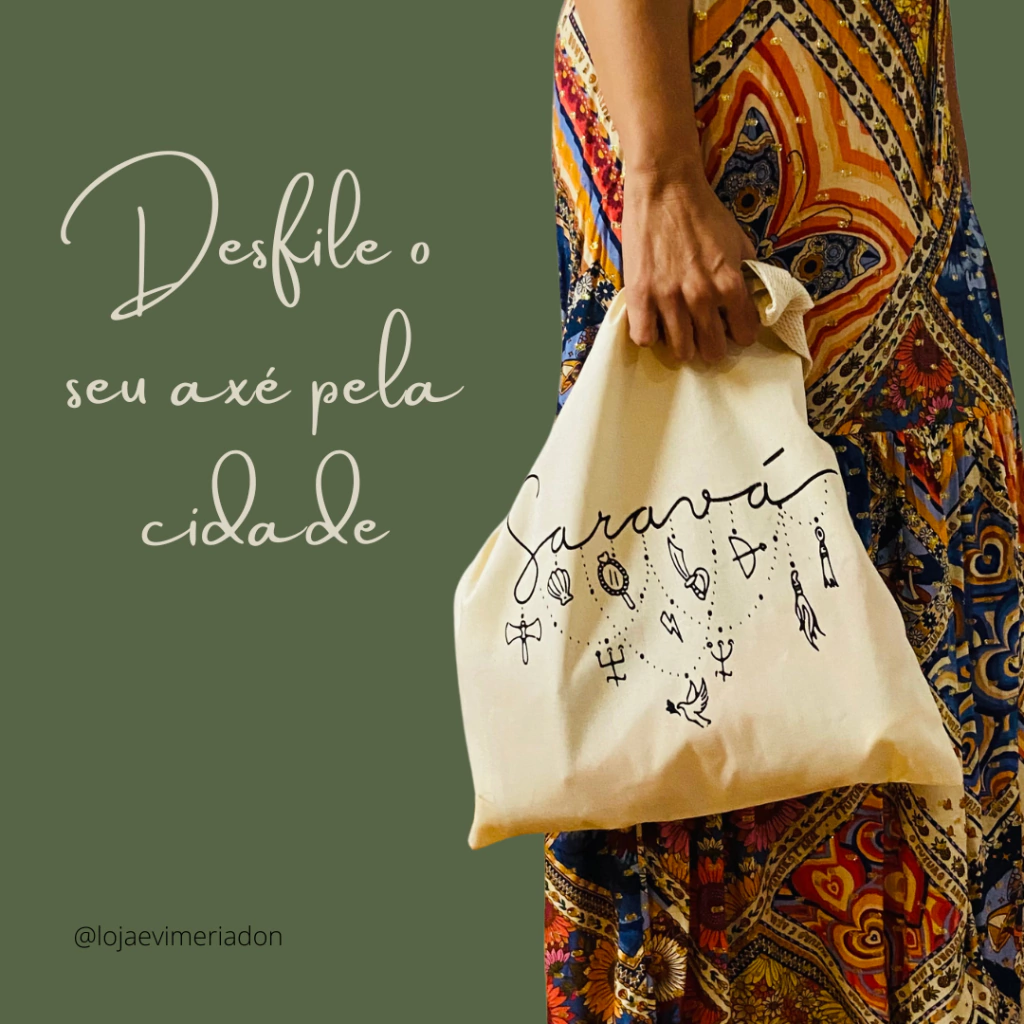 Desfile o
seu axé pela
cidade
Saravá
@lojaevimeriadon